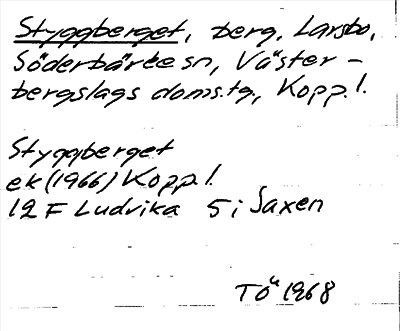 Styggberget, berg, Larsbo,
Söderbärke sn, Väster-
bergslags doms.tg, Kopp.l.
Styggberget
ek (1966) Kopp.l.
12 F Ludvika 5 i Saxen
TÖ 1968